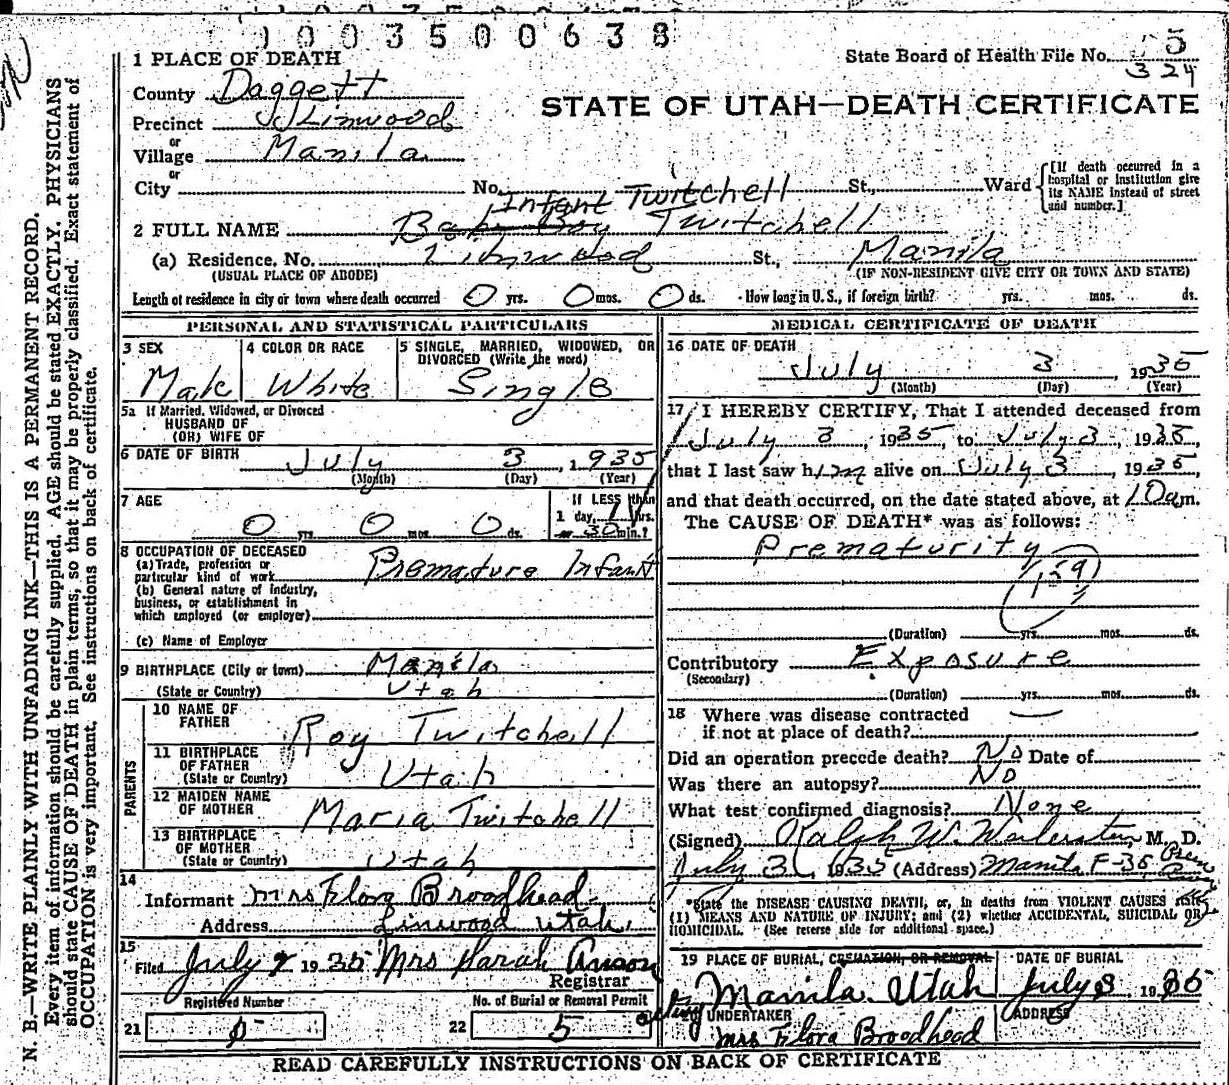 0003500638
State Board of Health File No. 5
324
1 PLACE OF DEATH
County Daggett
STATE OF UTAH—DEATH CERTIFICATE
Precinct Linwood
or
Village Manila
or
City No. St., Ward
[If death occurred in a hospital or institution give its NAME instead of street and number.]
Infant Twitchell
2 FULL NAME Baby Boy Twitchell
(a) Residence. No. Linwood St., Manila
(USUAL PLACE OF ABODE) (IF NON-RESIDENT GIVE CITY OR TOWN AND STATE)
Length of residence in city or town where death occurred 0 yrs. 0 mos. 0 ds. How long in U. S., if foreign birth? yrs. mos. ds.
PERSONAL AND STATISTICAL PARTICULARS
3 SEX
Male
4 COLOR OR RACE
White
5 SINGLE, MARRIED, WIDOWED, OR
DIVORCED (Write the word)
Single
5a If Married, Widowed, or Divorced
HUSBAND OF
(OR) WIFE OF
6 DATE OF BIRTH July 3, 1935
(Month) (Day) (Year)
7 AGE
0 yrs. 0 mos. 0 ds.
If LESS than
1 day, hrs.
or 30 min.?
8 OCCUPATION OF DECEASED
(a) Trade, profession or
particular kind of work Premature Infant
(b) General nature of industry,
business, or establishment in
which employed (or employer)
(c) Name of Employer
9 BIRTHPLACE (City or town) Manila
(State or Country) Utah
PARENTS
10 NAME OF
FATHER Roy Twitchell
11 BIRTHPLACE
OF FATHER
(State or Country) Utah
12 MAIDEN NAME
OF MOTHER Maria Twitchell
13 BIRTHPLACE
OF MOTHER
(State or Country) Utah
14
Informant Mrs Flora Broodhead
Address Linwood Utah.
15
Filed July 1935 Mrs Sarah Anson
Registrar
Registered Number
21
No. of Burial or Removal Permit
22 5
MEDICAL CERTIFICATE OF DEATH
16 DATE OF DEATH
July 3, 1935
(Month) (Day) (Year)
17 I HEREBY CERTIFY, That I attended deceased from
July 3, 1935, to July 3, 1935,
that I last saw him alive on July 3, 1935,
and that death occurred, on the date stated above, at 10am.
The CAUSE OF DEATH* was as follows:
Prematurity
159
(Duration) yrs. mos. ds.
Contributory Exposure
(Secondary)
(Duration) yrs. mos. ds.
18 Where was disease contracted
if not at place of death? —
Did an operation precede death? No Date of
Was there an autopsy? No
What test confirmed diagnosis? None
(Signed) Ralph W. M. D.
July 3, 1935 (Address) Manila
*State the DISEASE CAUSING DEATH, or, in deaths from VIOLENT CAUSES state
(1) MEANS AND NATURE OF INJURY; and (2) whether ACCIDENTAL, SUICIDAL OR
HOMICIDAL. (See reverse side for additional space.)
19 PLACE OF BURIAL, CREMATION, OR REMOVAL
Manila Utah
DATE OF BURIAL
July 3 1935
acting
20 UNDERTAKER
Mrs Flora Broodhead
ADDRESS
READ CAREFULLY INSTRUCTIONS ON BACK OF CERTIFICATE
N. B.—WRITE PLAINLY WITH UNFADING INK—THIS IS A PERMANENT RECORD.
Every item of information should be carefully supplied. AGE should be stated EXACTLY. PHYSICIANS
should state CAUSE OF DEATH in plain terms, so that it may be properly classified. Exact statement of
OCCUPATION is very important. See instructions on back of certificate.